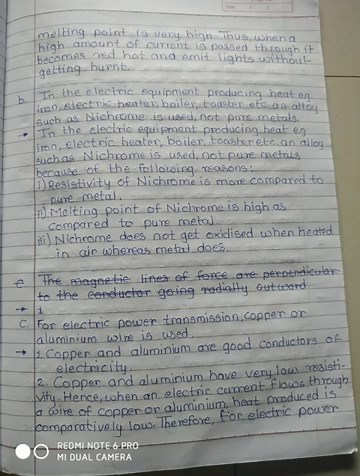 melting point is very high. Thus, when a
high amount of current is passed through it
becomes red hot and emit lights without
getting burnt.
b. In the electric equipment producing heat eg.
iron, electric heater, boiler, toaster etc. an alloy
such as Nichrome is used, not pure metals.
→ In the electric equipment producing heat eg
iron, electric heater, boiler, toaster etc. an alloy
such as Nichrome is used, not pure metals
because of the following reasons:
i) Resistivity of Nichrome is more compared to
pure metal.
ii) Melting point of Nichrome is high as
compared to pure metal
iii) Nichrome does not get oxidised when heated
in air whereas metal does.
e The magnetic lines of force are perpendicular
to the conductor going radially outward
→ 1
C. For electric power transmission, copper or
aluminium wire is used.
→ 1. Copper and aluminium are good conductors of
electricity.
2. Copper and aluminium have very low resisti-
vity. Hence, when an electric current flows through
a wire of copper or aluminium, heat produced is
comparatively low. Therefore, for electric power
REDMI NOTE 6 PRO
MI DUAL CAMERA